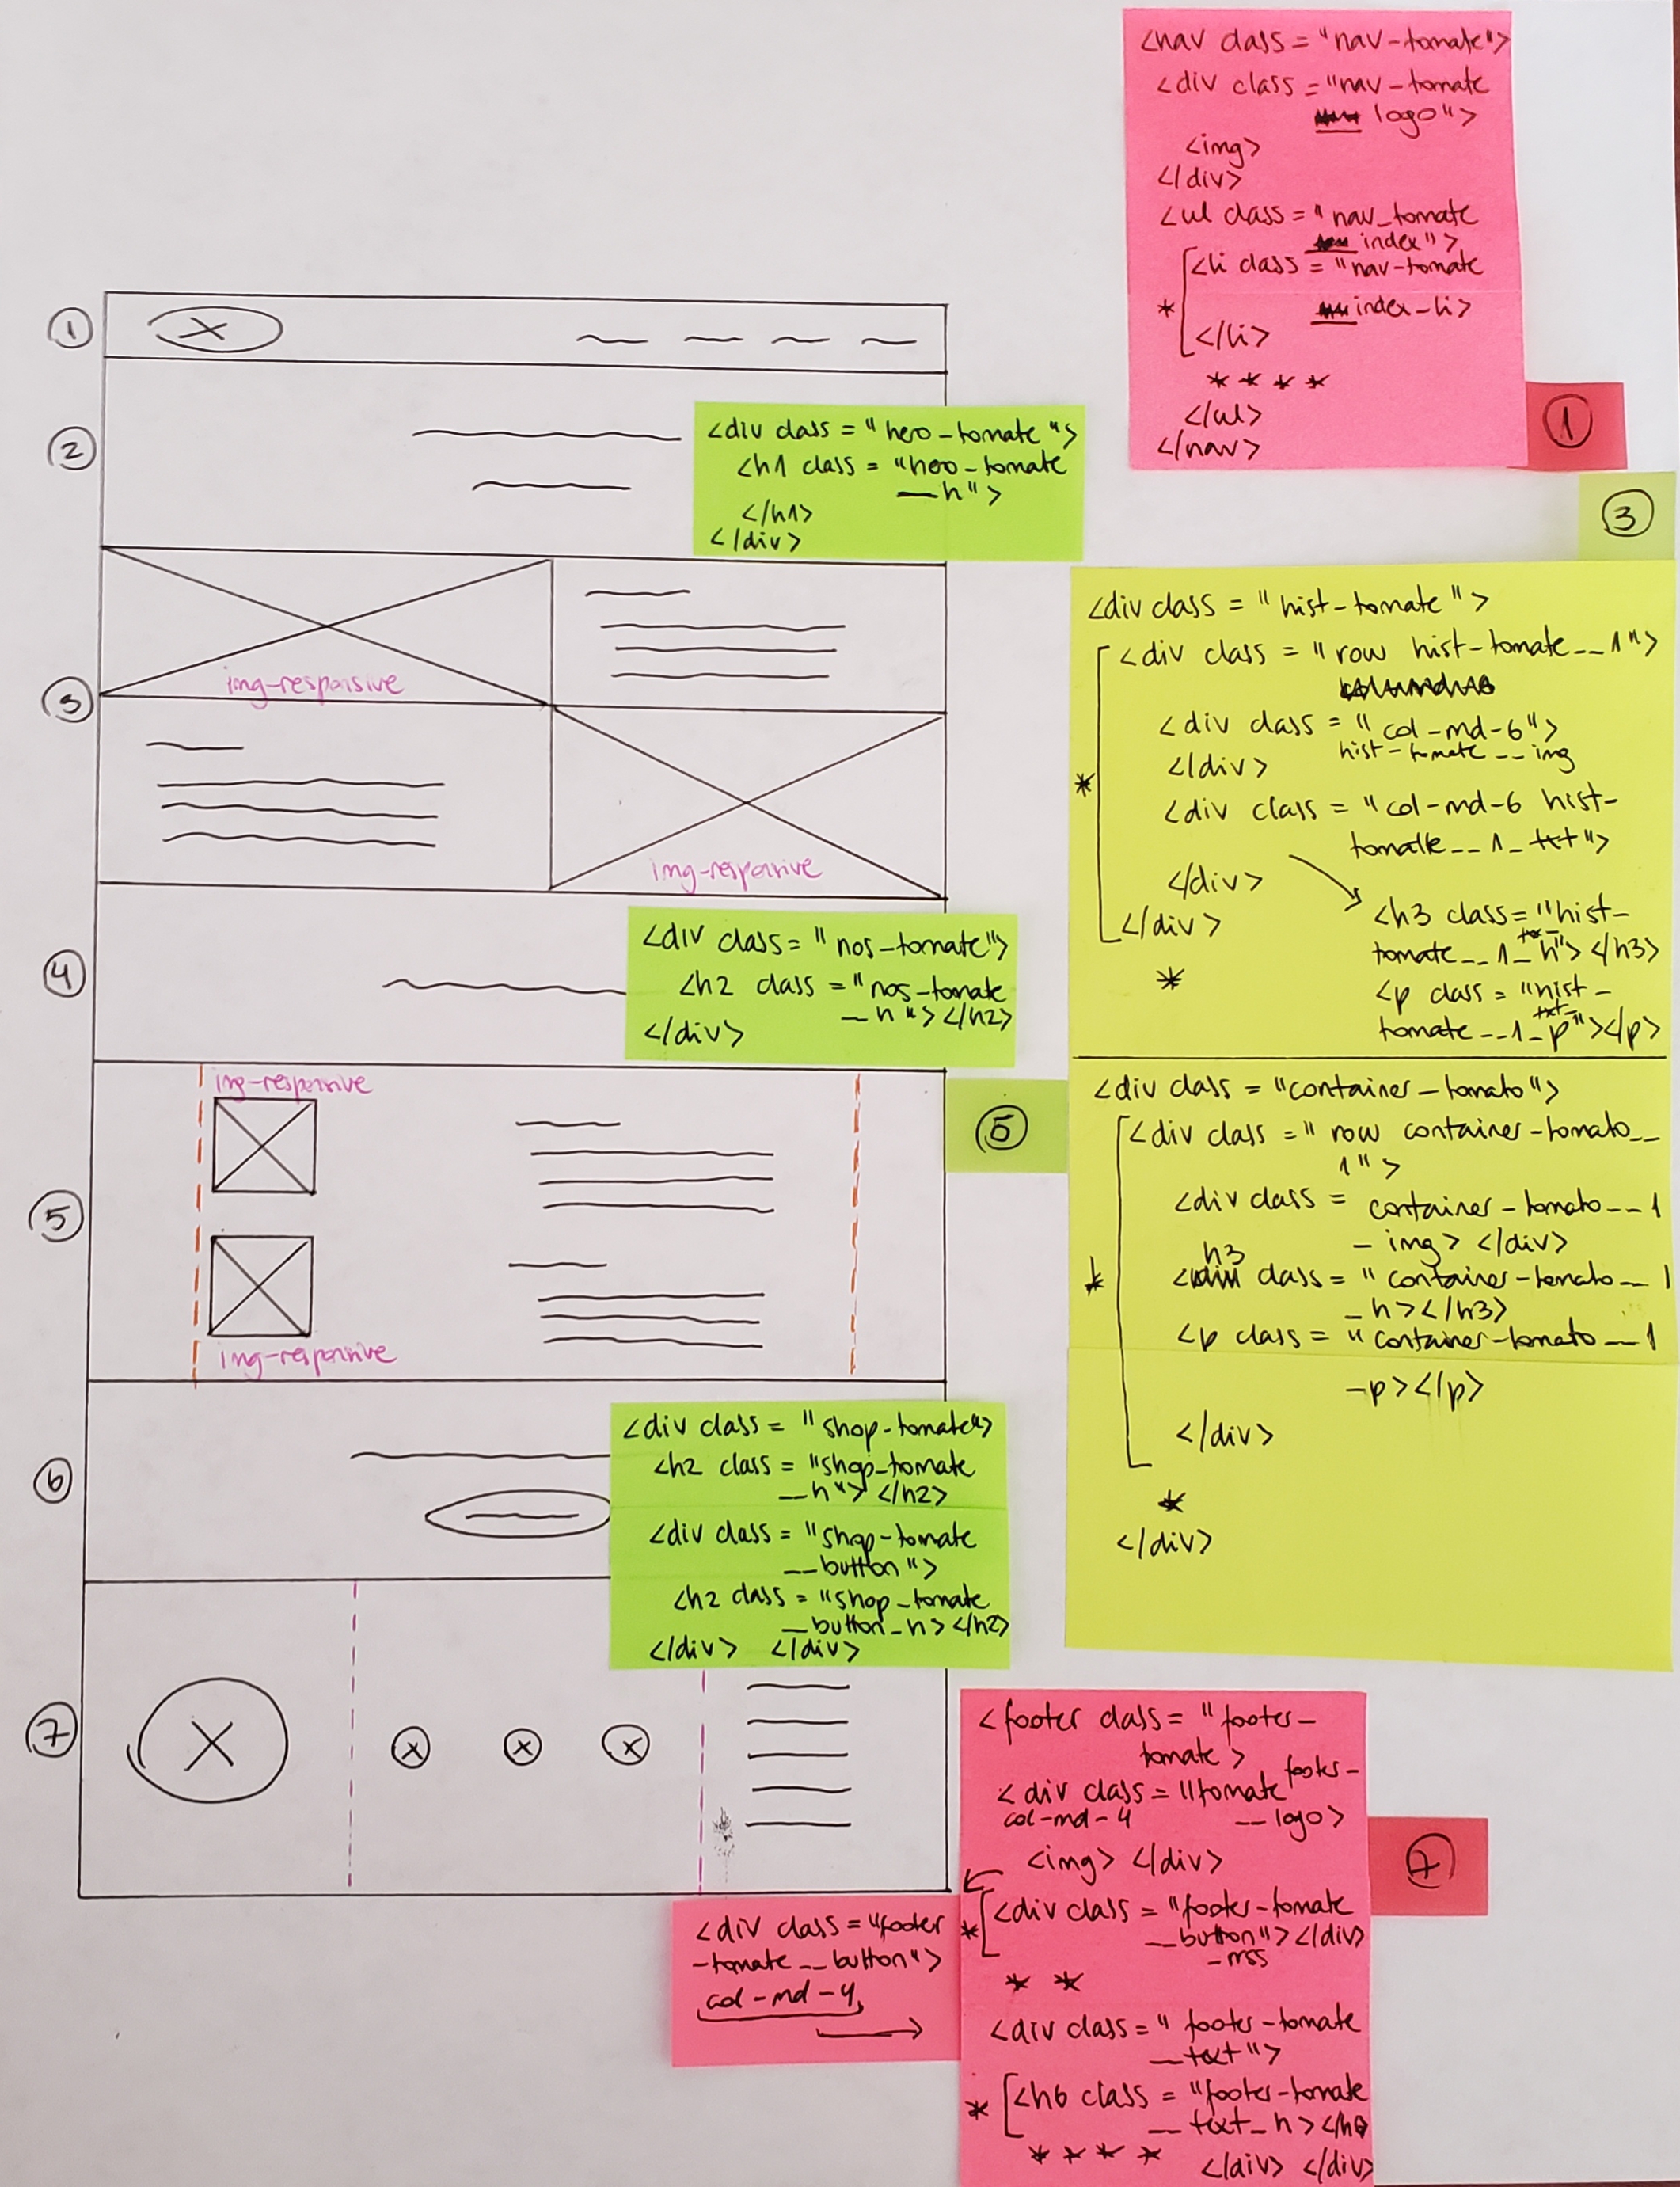 <nav class = "nav-tomate">
<div class = "nav-tomate
logo">
<img>
</div>
<ul class = "nav_tomate
index">
* <li class = "nav-tomate
index-li>
</li>
* * * *
</ul>
</nav>
1
1
2
<div class = "hero-tomate">
<h1 class = "hero-tomate
__h">
</h1>
</div>
3
img-responsive
3
img-responsive
<div class = "hist-tomate">
* <div class = "row hist-tomate__1">
<div class = "col-md-6">
hist-tomate__img
</div>
<div class = "col-md-6 hist-
tomate__1_txt">
</div>
</div>
*
<h3 class = "hist-
tomate__1_h"> </h3>
<p class = "hist-
txt-
tomate__1_p"></p>
4
<div class = "nos-tomate">
<h2 class = "nos-tomate
__h"></h2>
</div>
5
img-responsive
5
img-responsive
<div class = "container-tomato">
* <div class = "row container-tomato__
1">
<div class = container-tomato__1
_img> </div>
h3
< class = "container-tomato__1
_h></h3>
<p class = "container-tomato__1
-p></p>
</div>
*
</div>
6
<div class = "shop-tomate">
<h2 class = "shop-tomate
__h"> </h2>
<div class = "shop-tomate
__button">
<h2 class = "shop-tomate
__button_h></h2>
</div> </div>
7
7
<footer class = "footer-
tomate>
<div class = "tomate footer-
col-md-4 __logo>
<img> </div>
* <div class = "footer-tomate
__button"></div>
-rrss
* *
<div class = "footer
-tomate__button">
col-md-4
<div class = "footer-tomate
__text">
* <h6 class = "footer-tomate
__text_h></h6
* * * *
</div> </div>